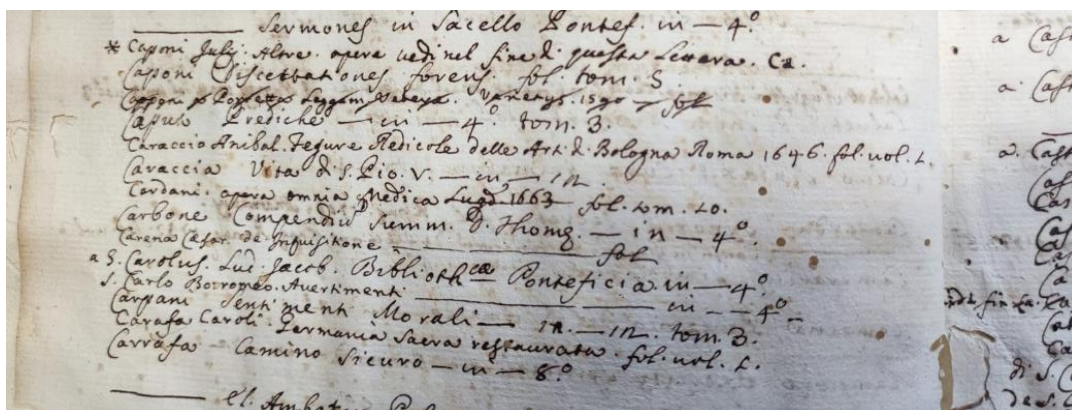 ——— Sermones in Sacello Pontef. in — 4°.
* Caponi Julij. Altre. opere vedi nel fine di questa Lettera. Ca.
Caponi Discettationes forens. fol. tom. 5
Venetijs. 1590 — fol
Capus Prediche — in — 4°. tom. 3.
Caraccio Anibal. Fegure Redicole delle Arti di Bologna Roma 1646. fol. vol. 1.
Caraccia Vita di S. Pio. V. — in — 12.
Cardani. opera omnia Medica Lugd. 1663 — fol. tom. 10.
Carbone Compendiū summ. D. Thomę. — in — 4°.
Carena Cæsar. de Inquisitione ——— fol
a S. Carolus. Lud. Jacob. Bibliothca Pontificia in — 4°.
S. Carlo Borromeo. Avertimenti ——— in — 4°.
Carpani Sentimenti Morali — in — 12. tom. 3.
Carafa Caroli. Germania Sacra restaurata. fol. vol. 1.
Carrafa Camino Sicuro — in — 8°.
a Cast
a. Cast
a. Cast
Cas
Cas
Cas
Cas
Ca
di S. C